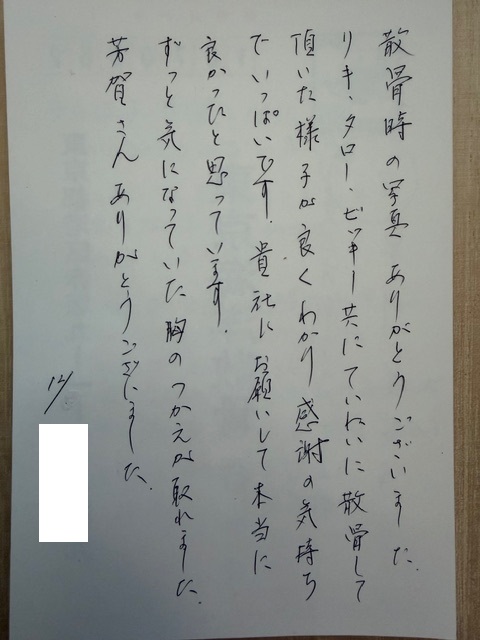 散骨時の写真 ありがとうございました.
リキ・タロー・ビッキー共にていねいに散骨して
頂いた様子が良くわかり感謝の気持ち
でいっぱいです. 貴社にお願いして本当に
良かったと思っています.
ずっと気になっていた胸のつかえが取れました.
芳賀さん ありがとうございました.
12/